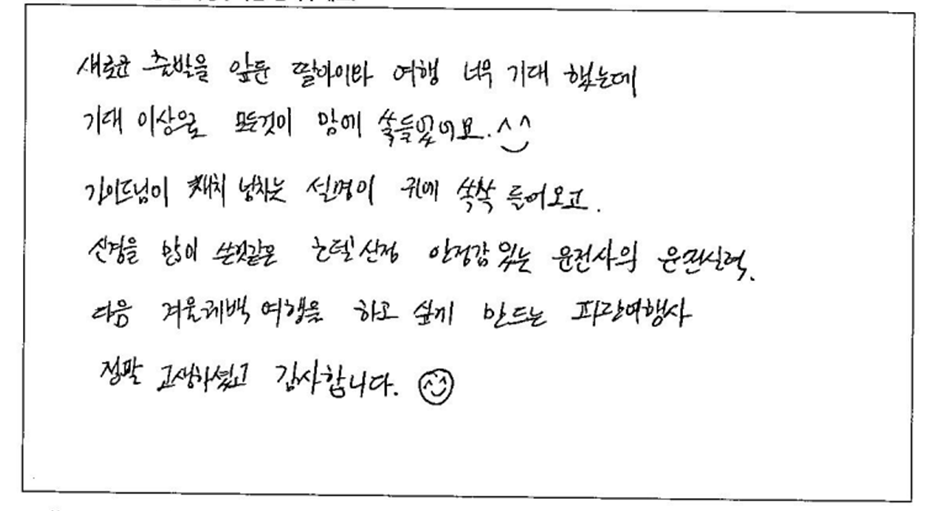 새로운 출발을 앞둔 딸아이와 여행 너무 기대 했는데
기대 이상으로 모든것이 맘에 쏙들었어요. ^^
가이드님이 재치 넘치는 설명이 귀에 쏙쏙 들어오고.
신경을 많이 쓴것같은 호텔선정 안정감 있는 운전사의 운전실력.
다음 겨울퀘백 여행을 하고 싶게 만드는 파란여행사
정말 고생하셨고 감사합니다.